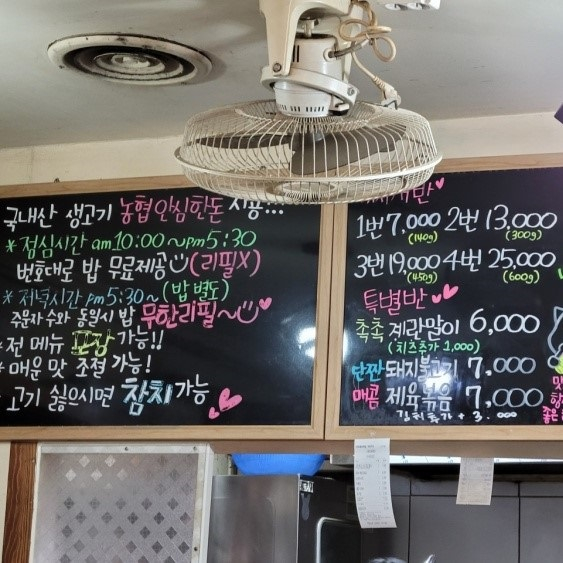 국내산 생고기 농협안심한돈 사용...
* 점심시간 am10:00~pm5:30
번호대로 밥 무료제공 (리필X)
* 저녁시간 pm5:30~ (밥 별도)
주문자 수와 동일시 밥 무한리필~
* 전 메뉴 포장 가능!!
* 매운 맛 조절 가능!
* 고기 싫으시면 참치 가능
1번 7,000 2번 13,000
(140g) (300g)
3번 19,000 4번 25,000
(450g) (600g)
특별반
촉촉 계란말이 6,000
(치즈추가 1,000)
단짠 돼지불고기 7,000
매콤 제육볶음 7,000
김치추가 + 3.000